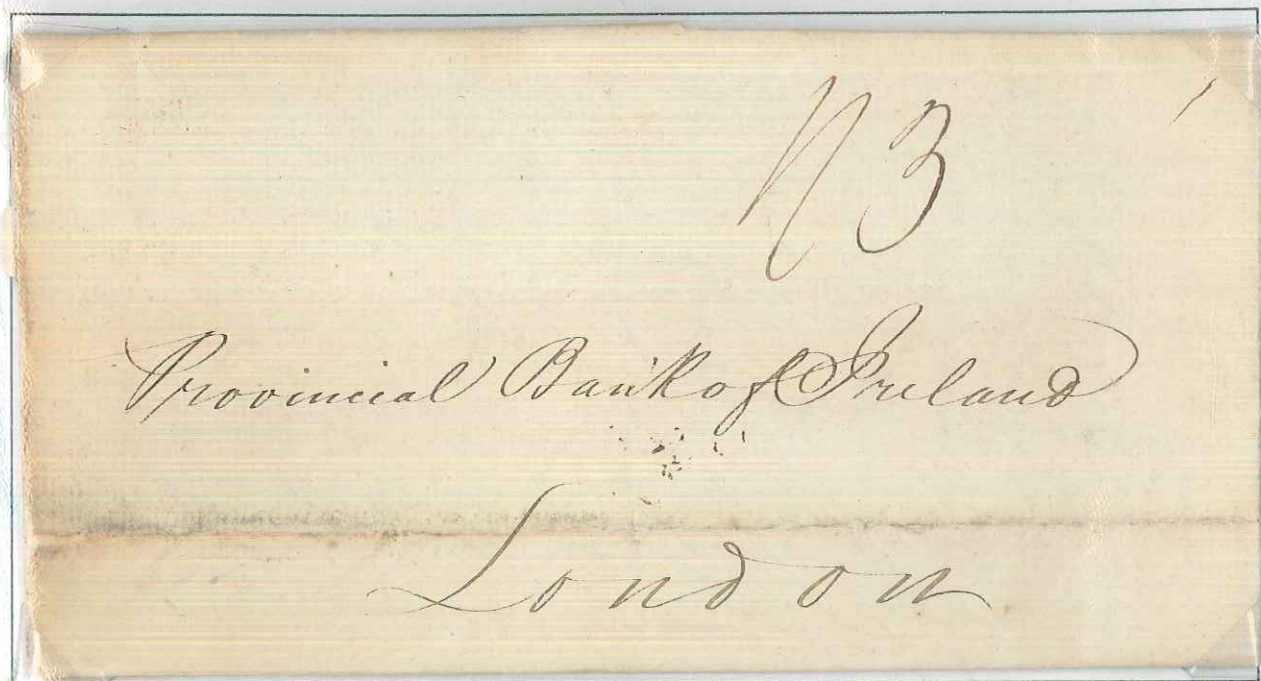 Provincial Bank of Ireland
London